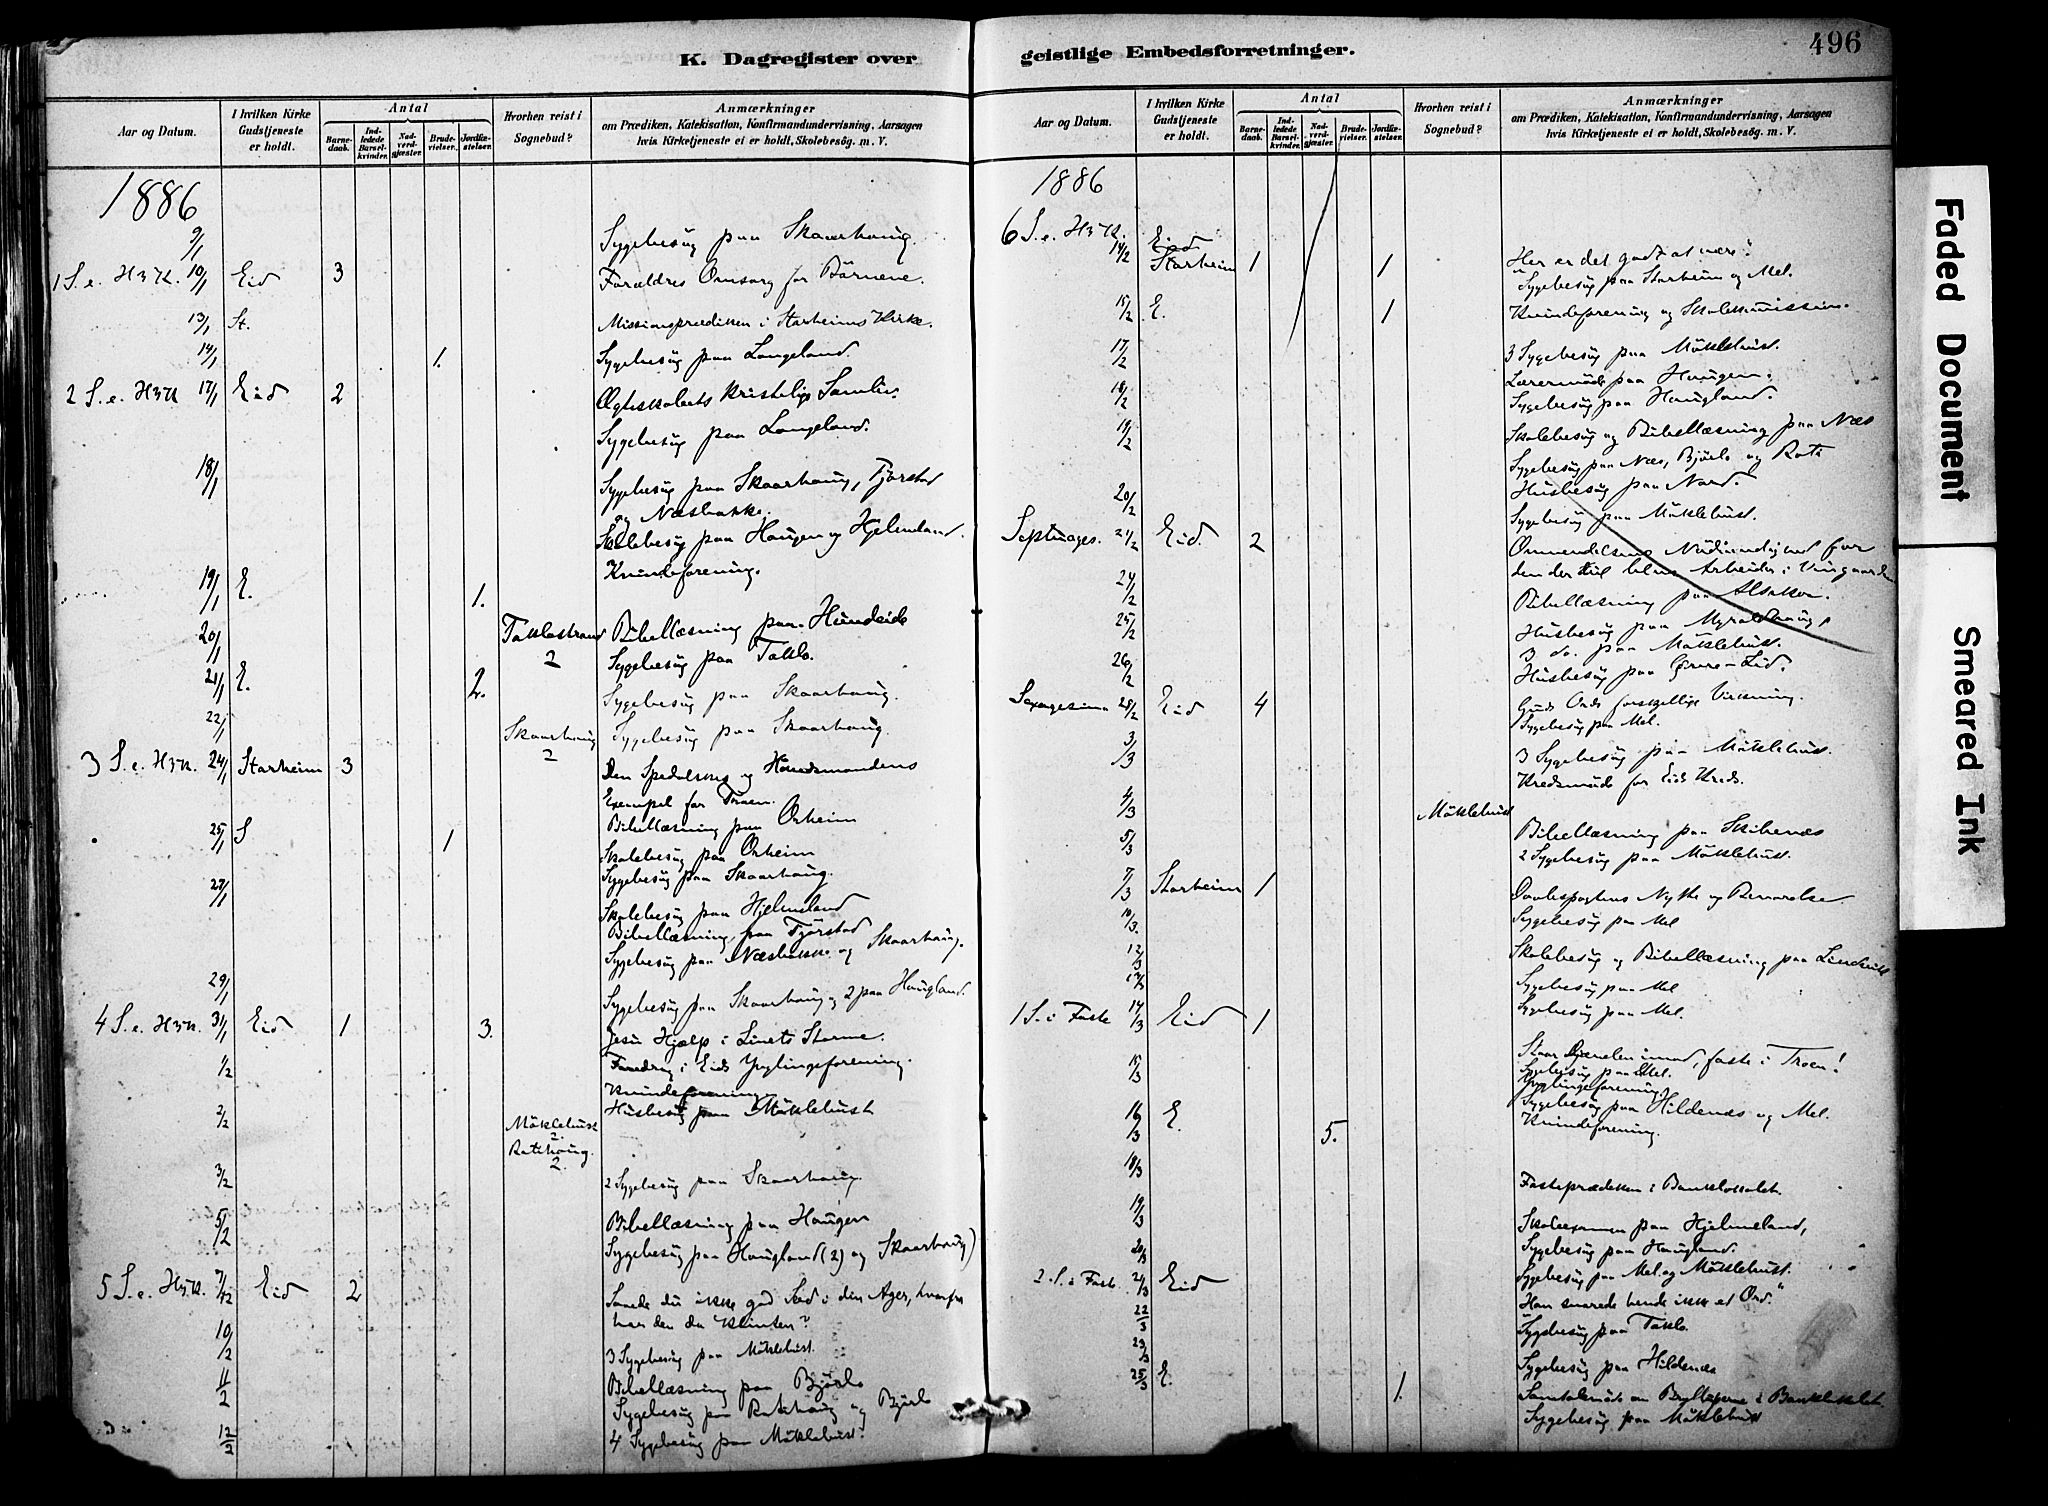 K. Dagregister over
Aar og Datum.
I hvilken Kirke Gudstjeneste er holdt.
Antal
Barnedaab.
Indledede Barselkvinder.
Nadverdgjæster.
Brudevielser.
Jordfæstelser.
Hvorhen reist i Sognebud?
Anmærkninger
om Prædiken, Katekisation, Konfirmandundervisning, Aarsagen
hvis Kirketjeneste ei er holdt, Skolebesøg. m. V.
1886
9/1 Sygebesøg paa Skaarhaug.
1 S. e. H3K. 10/1 Eid 3 Forældres Omsorg for Børnene.
13/1 St. Missionsprædiken i Starheims Kirke.
14/1 1. Sygebesøg paa Langeland.
2 S. e. H3K 17/1 Eid 2 Ægteskabets kristelige Samliv.
Sygebesøg paa Langeland.
18/1 Sygebesøg paa Skaarhaug, Tjørstad
og Næsbakke.
Skolebesøg paa Haugen og Hjelmeland.
19/1 E. 1. Kvindeforening.
20/1 Taklestrand 2 Bibellæsning paa Hundeide
Sygebesøg paa Taklo.
21/1 E. 2. Sygebesøg paa Skaarhaug.
22/1 Skaarhaug 2 Sygebesøg paa Skaarhaug.
3 S. e. H3K. 24/1 Starheim 3 Den Spedalske og Høvedsmandens
Exempel for Troen.
25/1 S 1 Bibellæsning paa Orheim
Skolebesøg paa Orheim
27/1 Sygebesøg paa Skaarhaug.
Skolebesøg paa Hjelmeland
Bibellæsning paa Tjørstad
Sygebesøg paa Næsbakke og Skaarhaug.
29/1 Sygebesøg paa Skaarhaug og 2 paa Haugland.
4 S. e. H3K. 31/1 Eid 1 3. Jesu Hjælp i Livets Storme.
1/2 Foredrag i Eids Ynglingeforening.
Kvindeforening
2/2 Møklebust 2. Husbesøg paa Møklebust
Ratehaug. 2.
3/2 2 Sygebesøg paa Skaarhaug.
5/2 Bibellæsning paa Haugen
Sygebesøg paa Haugland (2) og Skaarhaug)
5 S. e. H3K. 7/2 Eid 2 Saaede du ikke god Sæd i din Ager, hvorfra
har den da Klinten?
10/2 3 Sygebesøg paa Møklebust.
11/2 Bibellæsning paa Bjørlo
Sygebesøg paa Ratehaug og Bjørlo
12/2 4 Sygebesøg paa Møklebust.
geistlige Embedsforretninger.
496
Aar og Datum.
I hvilken Kirke Gudstjeneste er holdt.
Antal
Barnedaab.
Indledede Barselkvinder.
Nadverdgjæster.
Brudevielser.
Jordfæstelser.
Hvorhen reist i Sognebud?
Anmærkninger
om Prædiken, Katekisation, Konfirmandundervisning, Aarsagen
hvis Kirketjeneste ei er holdt, Skolebesøg. m. V.
1886
6 S. e. H3K. 14/2 Starheim 1 1 Her er det godt at være.
Sygebesøg paa Starheim og Mel.
15/2 E. 1 Kvindeforening og Skolekommission.
17/2 3 Sygebesøg paa Møklebust.
Lærermøde paa Haugen.
18/2 Sygebesøg paa Haugland.
19/2 Skolebesøg og Bibellæsning paa Næs
Sygebesøg paa Næs, Bjørlo og
Husbesøg paa Nord.
20/2 Sygebesøg paa Møklebust.
Septuages. 21/2 Eid. 2 Omvendelsens Nødvendighed for
den der vil blive Arbeider i Vingaarden
24/2 Bibellæsning paa
25/2 Husbesøg paa Myroldhaug,
3 do. paa Møklebust.
26/2 Husbesøg paa
Sexagesima 28/2 Eid 4 Guds Ords forskjellige Virkning.
Sygebesøg paa Mel.
3/3 3 Sygebesøg paa Møklebust.
Kredsmøde for Eids Kreds.
4/3 Møklebust
5/3 Bibellæsning paa Skibenæs
2 Sygebesøg paa Møklebust.
7/3 Starheim 1 Daabspagtens Nytte og Bevarelse
10/3. Sygebesøg paa Mel
12/3 Skolebesøg og Bibellæsning paa Lindvik
13/3 Sygebesøg paa Mel
1 S. i Faste 14/3 Eid 1 Sygebesøg paa Mel.
Staar Djævelen imod, faste i Troen!
15/3 Sygebesøg paa Mel.
Ynglingeforening
16/3 E. 5. Sygebesøg paa Hildenæs og Mel.
Kvindeforening.
18/3 Fasteprædiken i Banklokalet.
19/3 Skoleexamen paa Hjelmeland,
Sygebesøg paa Haugland.
20/3 Sygebesøg paa Mel og Møklebust.
2. S. i Faste. 21/3 Eid Han svarede hende ikke et Ord.
22/3 Sygebesøg paa Taklo.
23/3 Sygebesøg paa Hildenæs
25/3 E. 1. Samtalemøde om i Banklokalet
Sygebesøg paa Møklebust
Faded Document
Smeared Ink